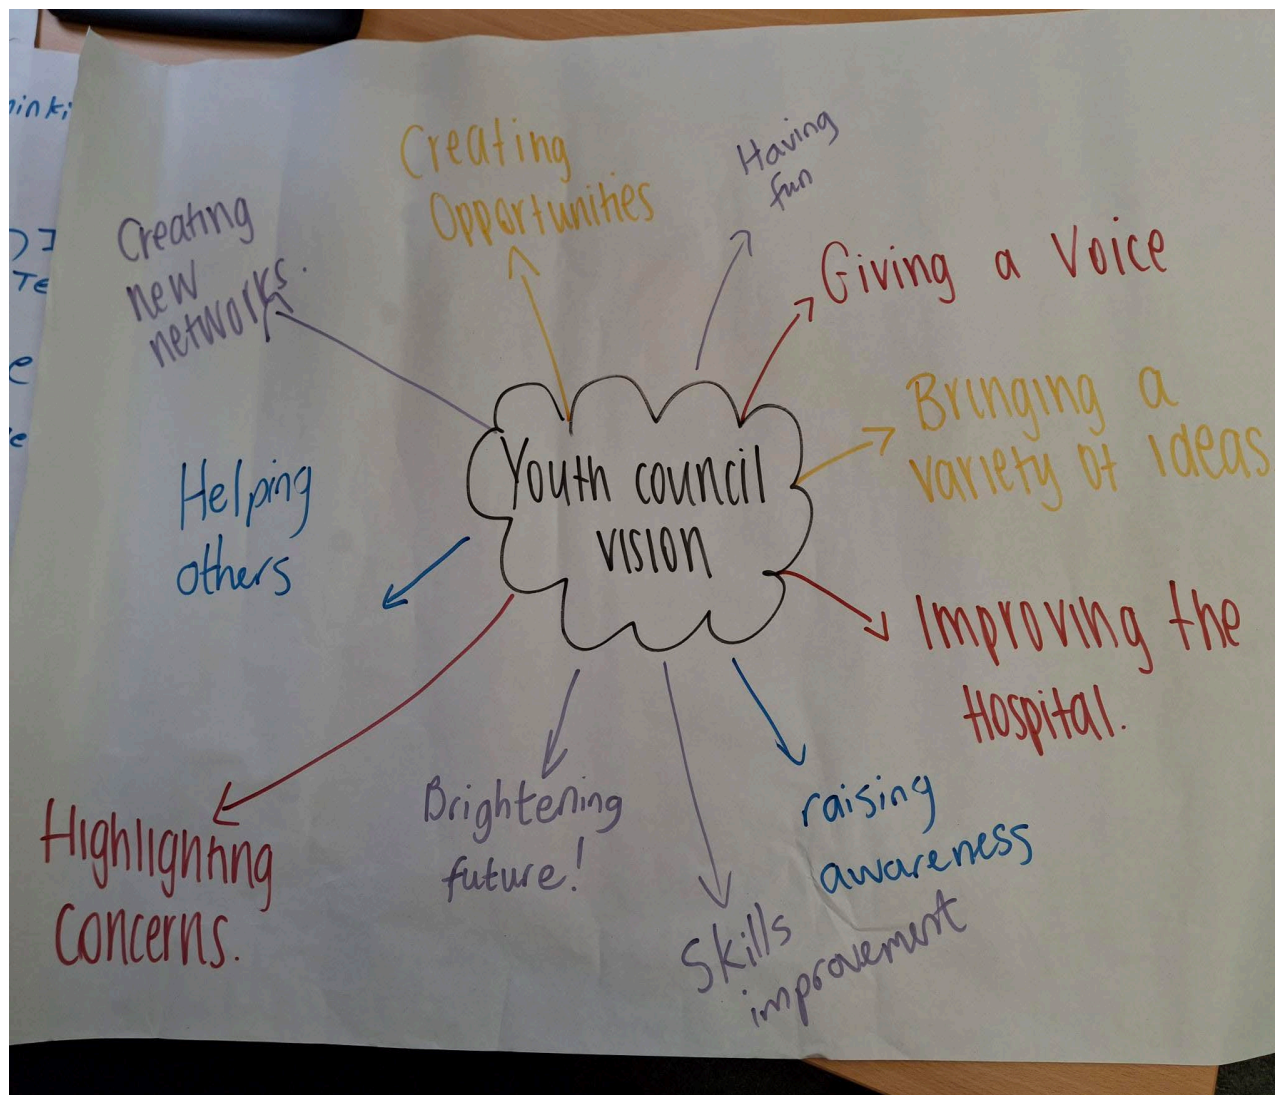 Youth council
vision
Creating
new
networks.
Creating
Opportunities
Having
fun
Giving a Voice
Bringing a
variety of ideas
Improving the
Hospital.
raising
awareness
Skills
improvement
Brightening
future!
Highlighting
Concerns.
Helping
others